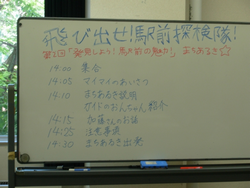 飛び出せ!駅前探検隊!
第1回「発見しよう!駅前の魅力!」まちあるき☆
14:00 集合
14:05 マイマイのあいさつ
14:10 まちあるき説明
ガイドのおんちゃん紹介
14:15 加藤さんのお話
14:25 注意事項
14:30 まちあるき出発